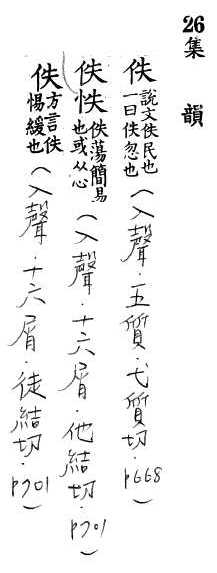 26
集韻
佚 說文佚民也一曰佚忽也（入聲．五質．弋質切．p668）
佚佚 佚蕩簡易也或从心（入聲．十六屑．他結切．p701）
佚 方言佚惕緩也（入聲．十六屑．徒結切．p701）